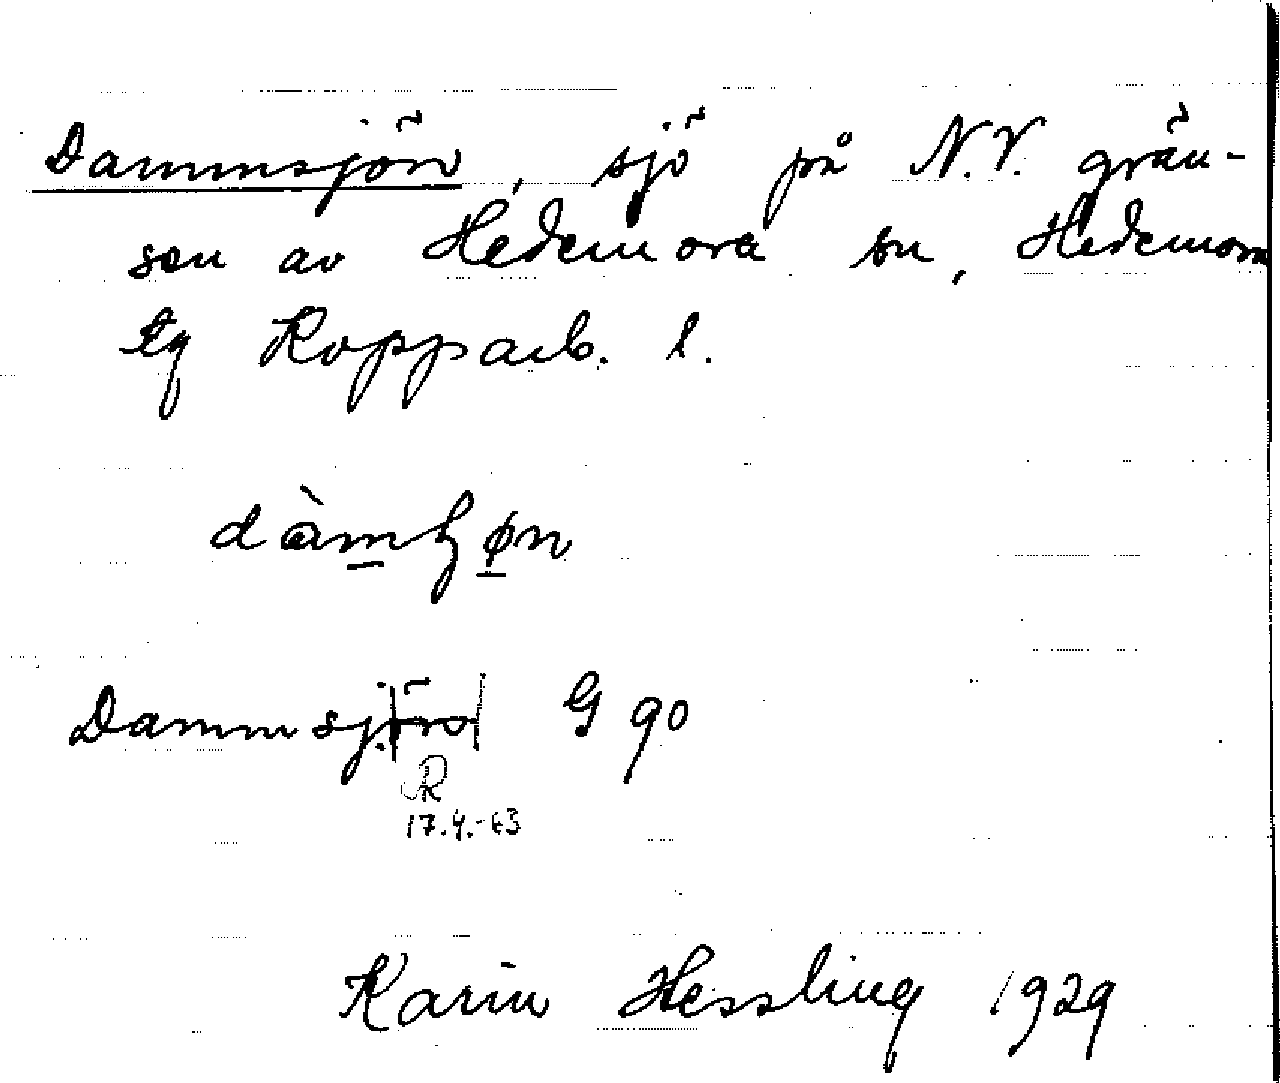 Dammsjön, sjö på N.V. grän-
sen av Hedemora sn, Hedemora
tg Kopparb. l.
dàmɧøn
Dammsjön G 90
R
17.4.-63
Karin Hessling 1929